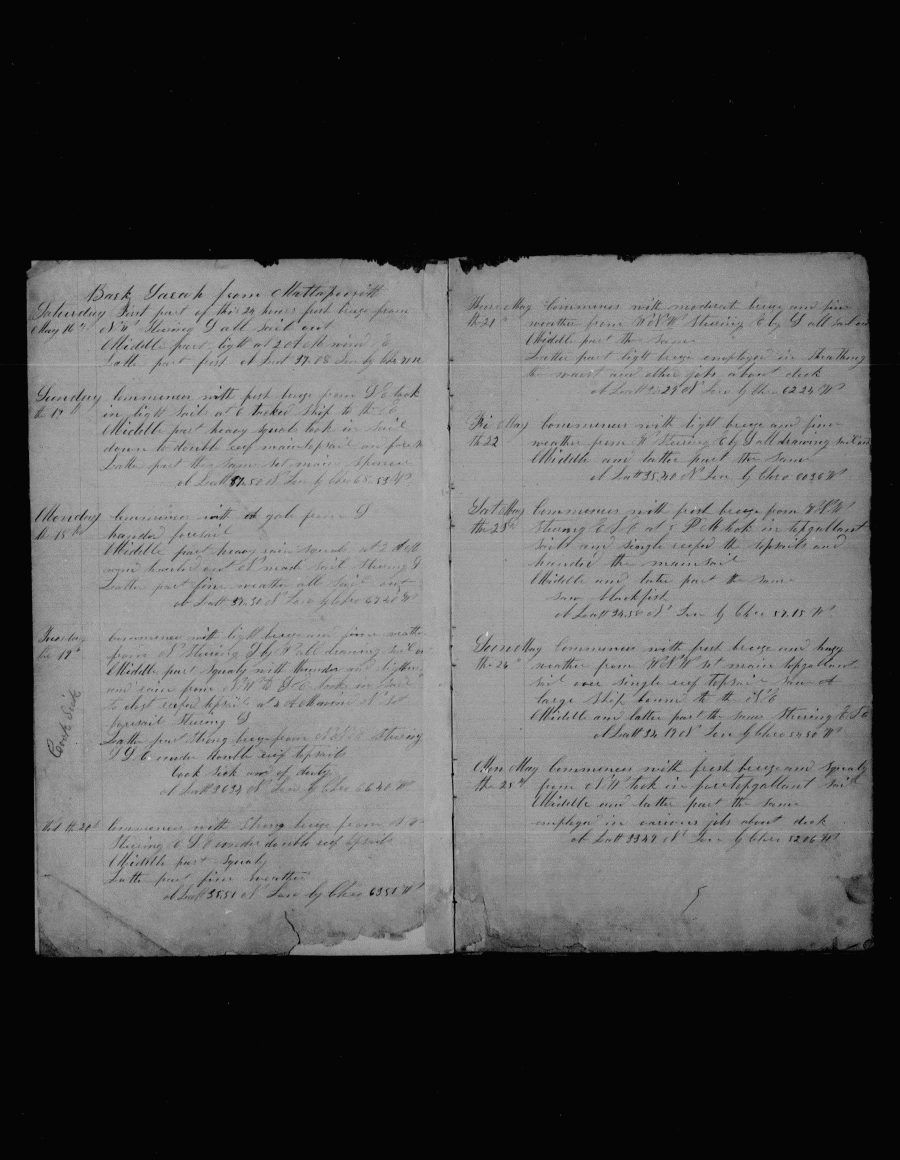 Bark Sarah from Mattapoisett
Saturday First part of this 24 hours fresh breeze from
May 16th N W Steering S all sail out
Middle part light at 2 A M wind
Latte part fresh at Latt 37.08 Lon by Chro
Sunday Commences with fresh breeze from S E took
the 17th in light sails at 6 tacked ship to the
Middle part heavy squals took in sail
down to double reef maintopsail an fore
Latte part the same set main spencer
at Latt 37.50 N Lon by Chro 68.53 W
Monday Commences with a gale from S
the 18th handed foresail
Middle part heavy rain squals at 2 A M
wind hauled out N made sail Steering S
Latte part fine weather all sail out
at Latt 37.31 N Lon by Chro W
Tuesday Commences with light breeze and fine weather
the 19th from N Steering S by E all drawing sail
Middle part squaly with thunder and lightn
and rain from N W to S E took in sail
to close reefed topsails at
foresail Steering S
Latte part Strong breeze from Steering
S S E under double reef topsails
Cook Sick
Cook sick and of duty
at Latt N Lon by Chro W
Wed the 20th Commences with Strong breeze from
Steering E S E under double reef topsails
Middle part squaly
Latte part fine weather
at Latt 35.51 N Lon by Chro 63.51 W
Thurs May Commences with moderat breeze and fine
the 21st weather from W N W Steering E by S all sail out
Middle part the same
Latter part light breeze employed in
the waist and other jobs about deck
at Latt N Lon by Chro 62 24 W
Fri May Commences with light breeze and fine
the 22 weather from W Steering E by S all drawing sail
Middle and latter part the same
at Latt 35.40 N Lon by Chro W
Sat May Commences with fresh breeze from
the 23d Steering E S E at 5 P M took in topgallant
sails and single reefed the topsails and
handed the mainsail
Middle and later part the same
Saw blackfish
at Latt 34.50 N Lon by Chro 57.15 W
May Commences with fresh breeze and hazy
the 24th weather from W N W set main topgallant
sail over single reef topsail saw a
large Ship bound to the N E
Middle and latter part the same Steering E S E
at Latt 34 N Lon by Chro W
Mon May Commences with fresh breeze and squaly
the 25th from N W took in foretopgallant sail
Middle and latter part the same
employed in various jobs about deck
at Latt 33 47 N Lon by Chro 52 06 W